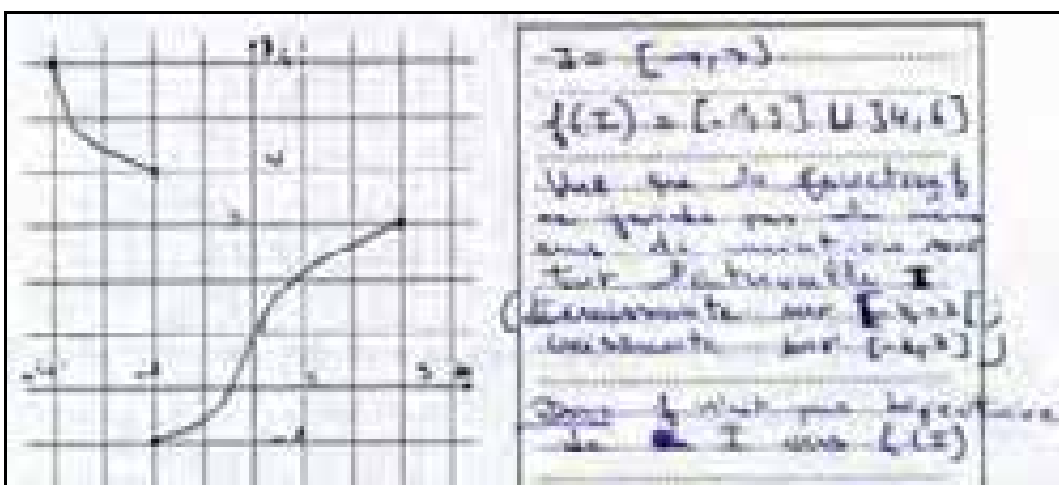 6
4
3
-4 -2 1 3
-1
I = [-4, 3]
f(I) = [-1, 3] U ]4, 6]
Vue que la fonction f
ne garde pas le même
sens de variation sur
tout l'intervalle I
(décroissante sur [-4, -2[ ;
croissante sur [-2, 3] )
Donc f n'est pas bijective
de I vers f(I)